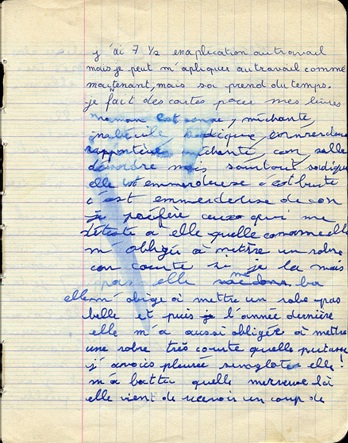 j'ai 7 1/2 en aplication au travail
mais je peut m'apliquer au travail comme
maintenant, mais sa prend du temps.
je fait des cartes pour mes livres
maman est conne, méchante,
ridicule, sadique, emmerdeuse
rapporteuse, méchante, con, salle
désordre mais surtout sadique
elle est emmerdeuse c'est brute
c'est emmerdeuse de con
je préfère ceux qui me
déteste a elle quelle conne elle
m'obligée à mettre un robe
con courte si je la mais
pas elle
elle m'obige a mettre un robe pas
belle et puis je l'année dernière
elle m'a aussi obligée a mettre
une robe très courte quelle putain
j'avais pleurée elle!
m'a battu quelle merveuse là
elle vient de recevoir un coup de